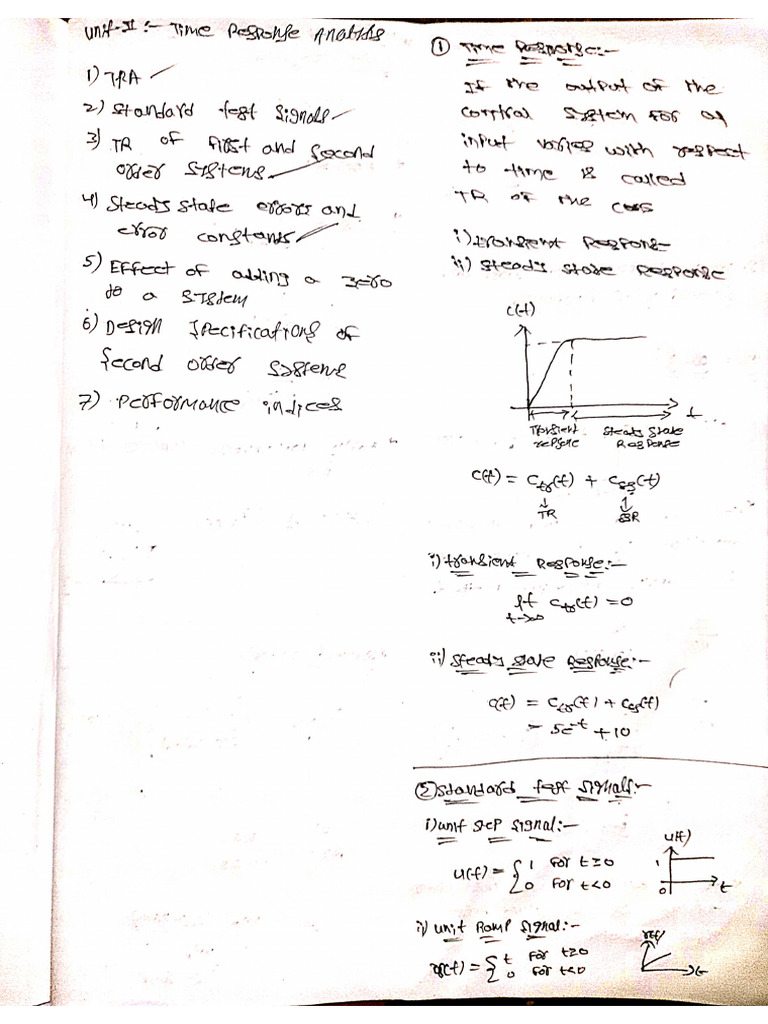 Unit-II :- Time Response Analysis
1) TRA ✓
2) Standard test signals ✓
3) TR of First and second
order systems ✓
4) Steady state errors and
error constants ✓
5) Effect of adding a zero
to a system
6) Design specifications of
second order systems
7) Performance indices
① Time Response:-
If the output of the
control system for an
input varies with respect
to time is called
TR of the
i) transient Response
ii) steady state Response
c(t)
t
Transient
Steady State
Response
c(t) = ctr(t) + css(t)
↓ ↓
TR SSR
i) transient Response:-
lt ctr(t) = 0
t→∞
ii) steady state Response:-
c(t) = ctr(t) + css(t)
= 5e^-t + 10
② Standard test signals:-
i) unit step signal:-
u(t) = { 1 for t≥0
0 for t<0
u(t)
1
0
t
ii) unit Ramp signal:-
r(t) = { t for t≥0
0 for t<0
r(t)
t